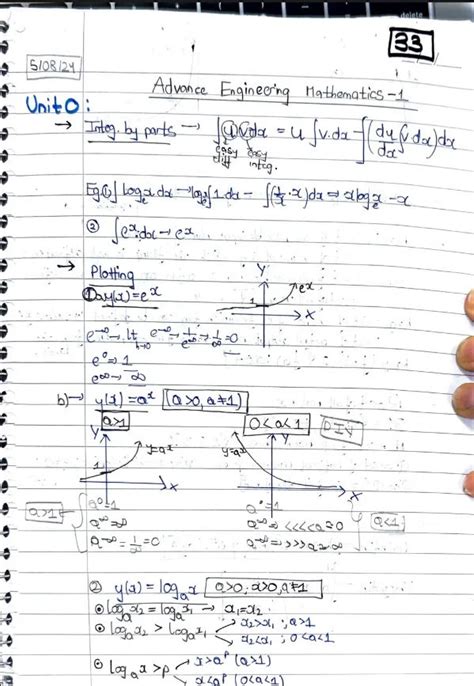 delete
33
5/08/24
Advance Engineering Mathematics-1
Unit 0:
→ Integ. by parts → ∫u v dx = u∫v.dx - ∫(du/dx ∫v dx)dx
easy diff easy integ.
Eg① ∫logₑx dx → logₑx∫1.dx - ∫(1/x · x)dx ⇒ xlogₑx - x
② ∫eˣ.dx → eˣ
→ Plotting
① a) y(x) = eˣ
Y
eˣ
1
→ X
e⁰ ⇒ 1
e^∞ → ∞
b) → y(x) = aˣ (a>0, a≠1)
a>1
0<a<1
D.I.Y
Y
y=aˣ
1
X
Y
y=aˣ
X
a>1
a⁰=1
a^∞=∞
a^-∞=1/∞=0
a⁰=1
a<1
② y(x) = logₐx a>0, x>0, a≠1
logₐx₂ = logₐx₁ → x₁=x₂
logₐx₂ > logₐx₁ → x₂>x₁ ; a>1
x₂<x₁ ; 0<a<1
logₐx > p → x>aᵖ (a>1)
x<aᵖ (0<a<1)